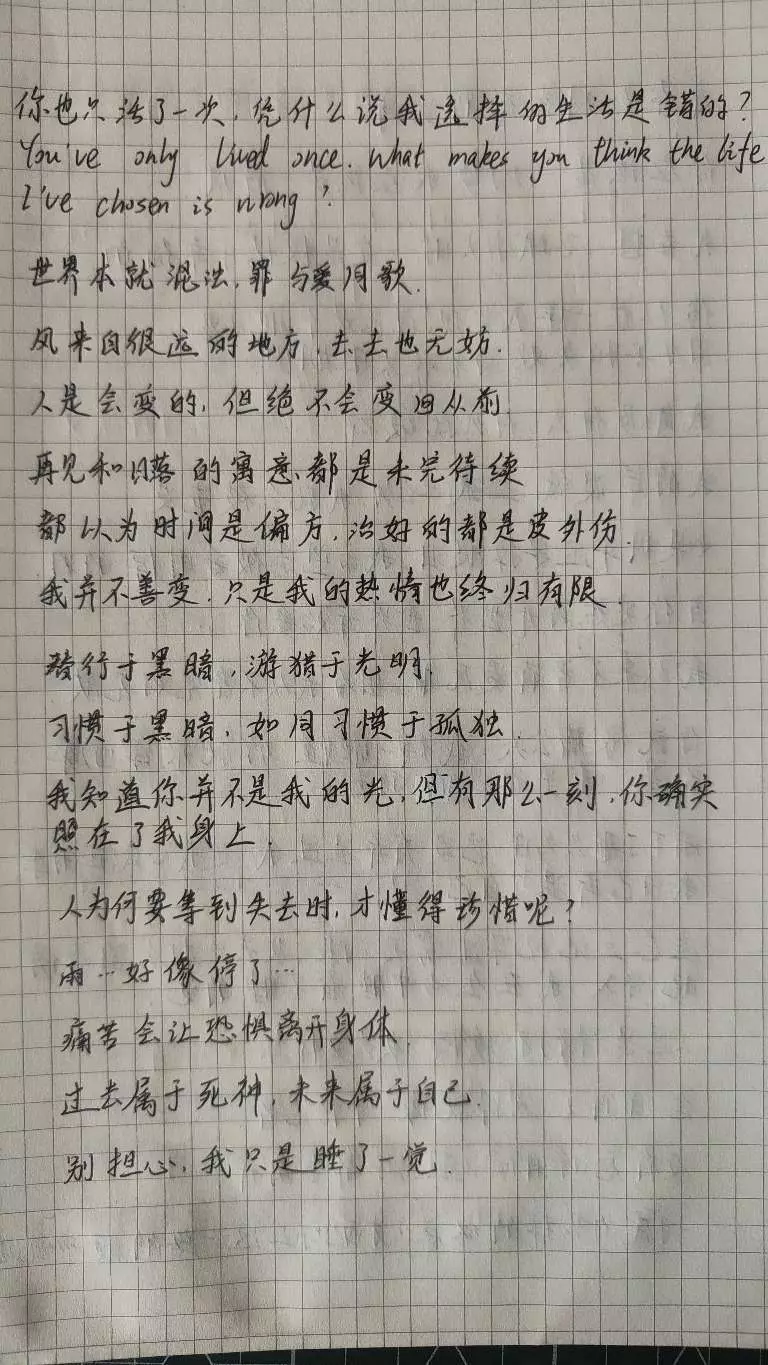 你也只活了一次，凭什么说我选择的生活是错的？
You've only lived once. what makes you think the life
I've chosen is wrong?
世界本就混浊，罪与爱同歌.
风来自很远的地方，去去也无妨.
人是会变的，但绝不会变回从前.
再见和日落的寓意都是未完待续
都以为时间是偏方，治好的都是皮外伤.
我并不善变，只是我的热情也终归有限.
骑行于黑暗，游猎于光明.
习惯于黑暗，如同习惯于孤独.
我知道你并不是我的光，但有那么一刻，你确实
照在了我身上.
人为何要等到失去时，才懂得珍惜呢？
雨…好像停了…
痛苦会让恐惧离开身体.
过去属于死神，未来属于自己.
别担心，我只是睡了一觉.